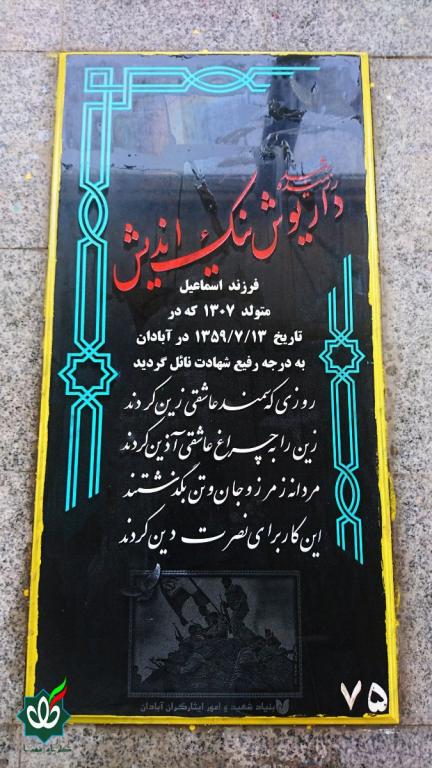 رزمنده شهید
داریوش نیک اندیش
فرزند اسماعیل
متولد ۱۳۰۷ که در
تاریخ ۱۳۵۹/۷/۱۳ در آبادان
به درجه رفیع شهادت نائل گردید
روزی که سمند عاشقی زین کردند
زین را به چراغ عاشقی آذین کردند
مردانه ز مرز و جان و تن بگذشتند
این کار برای نصرت دین کردند
بنیاد شهید و امور ایثارگران آبادان
۷۵